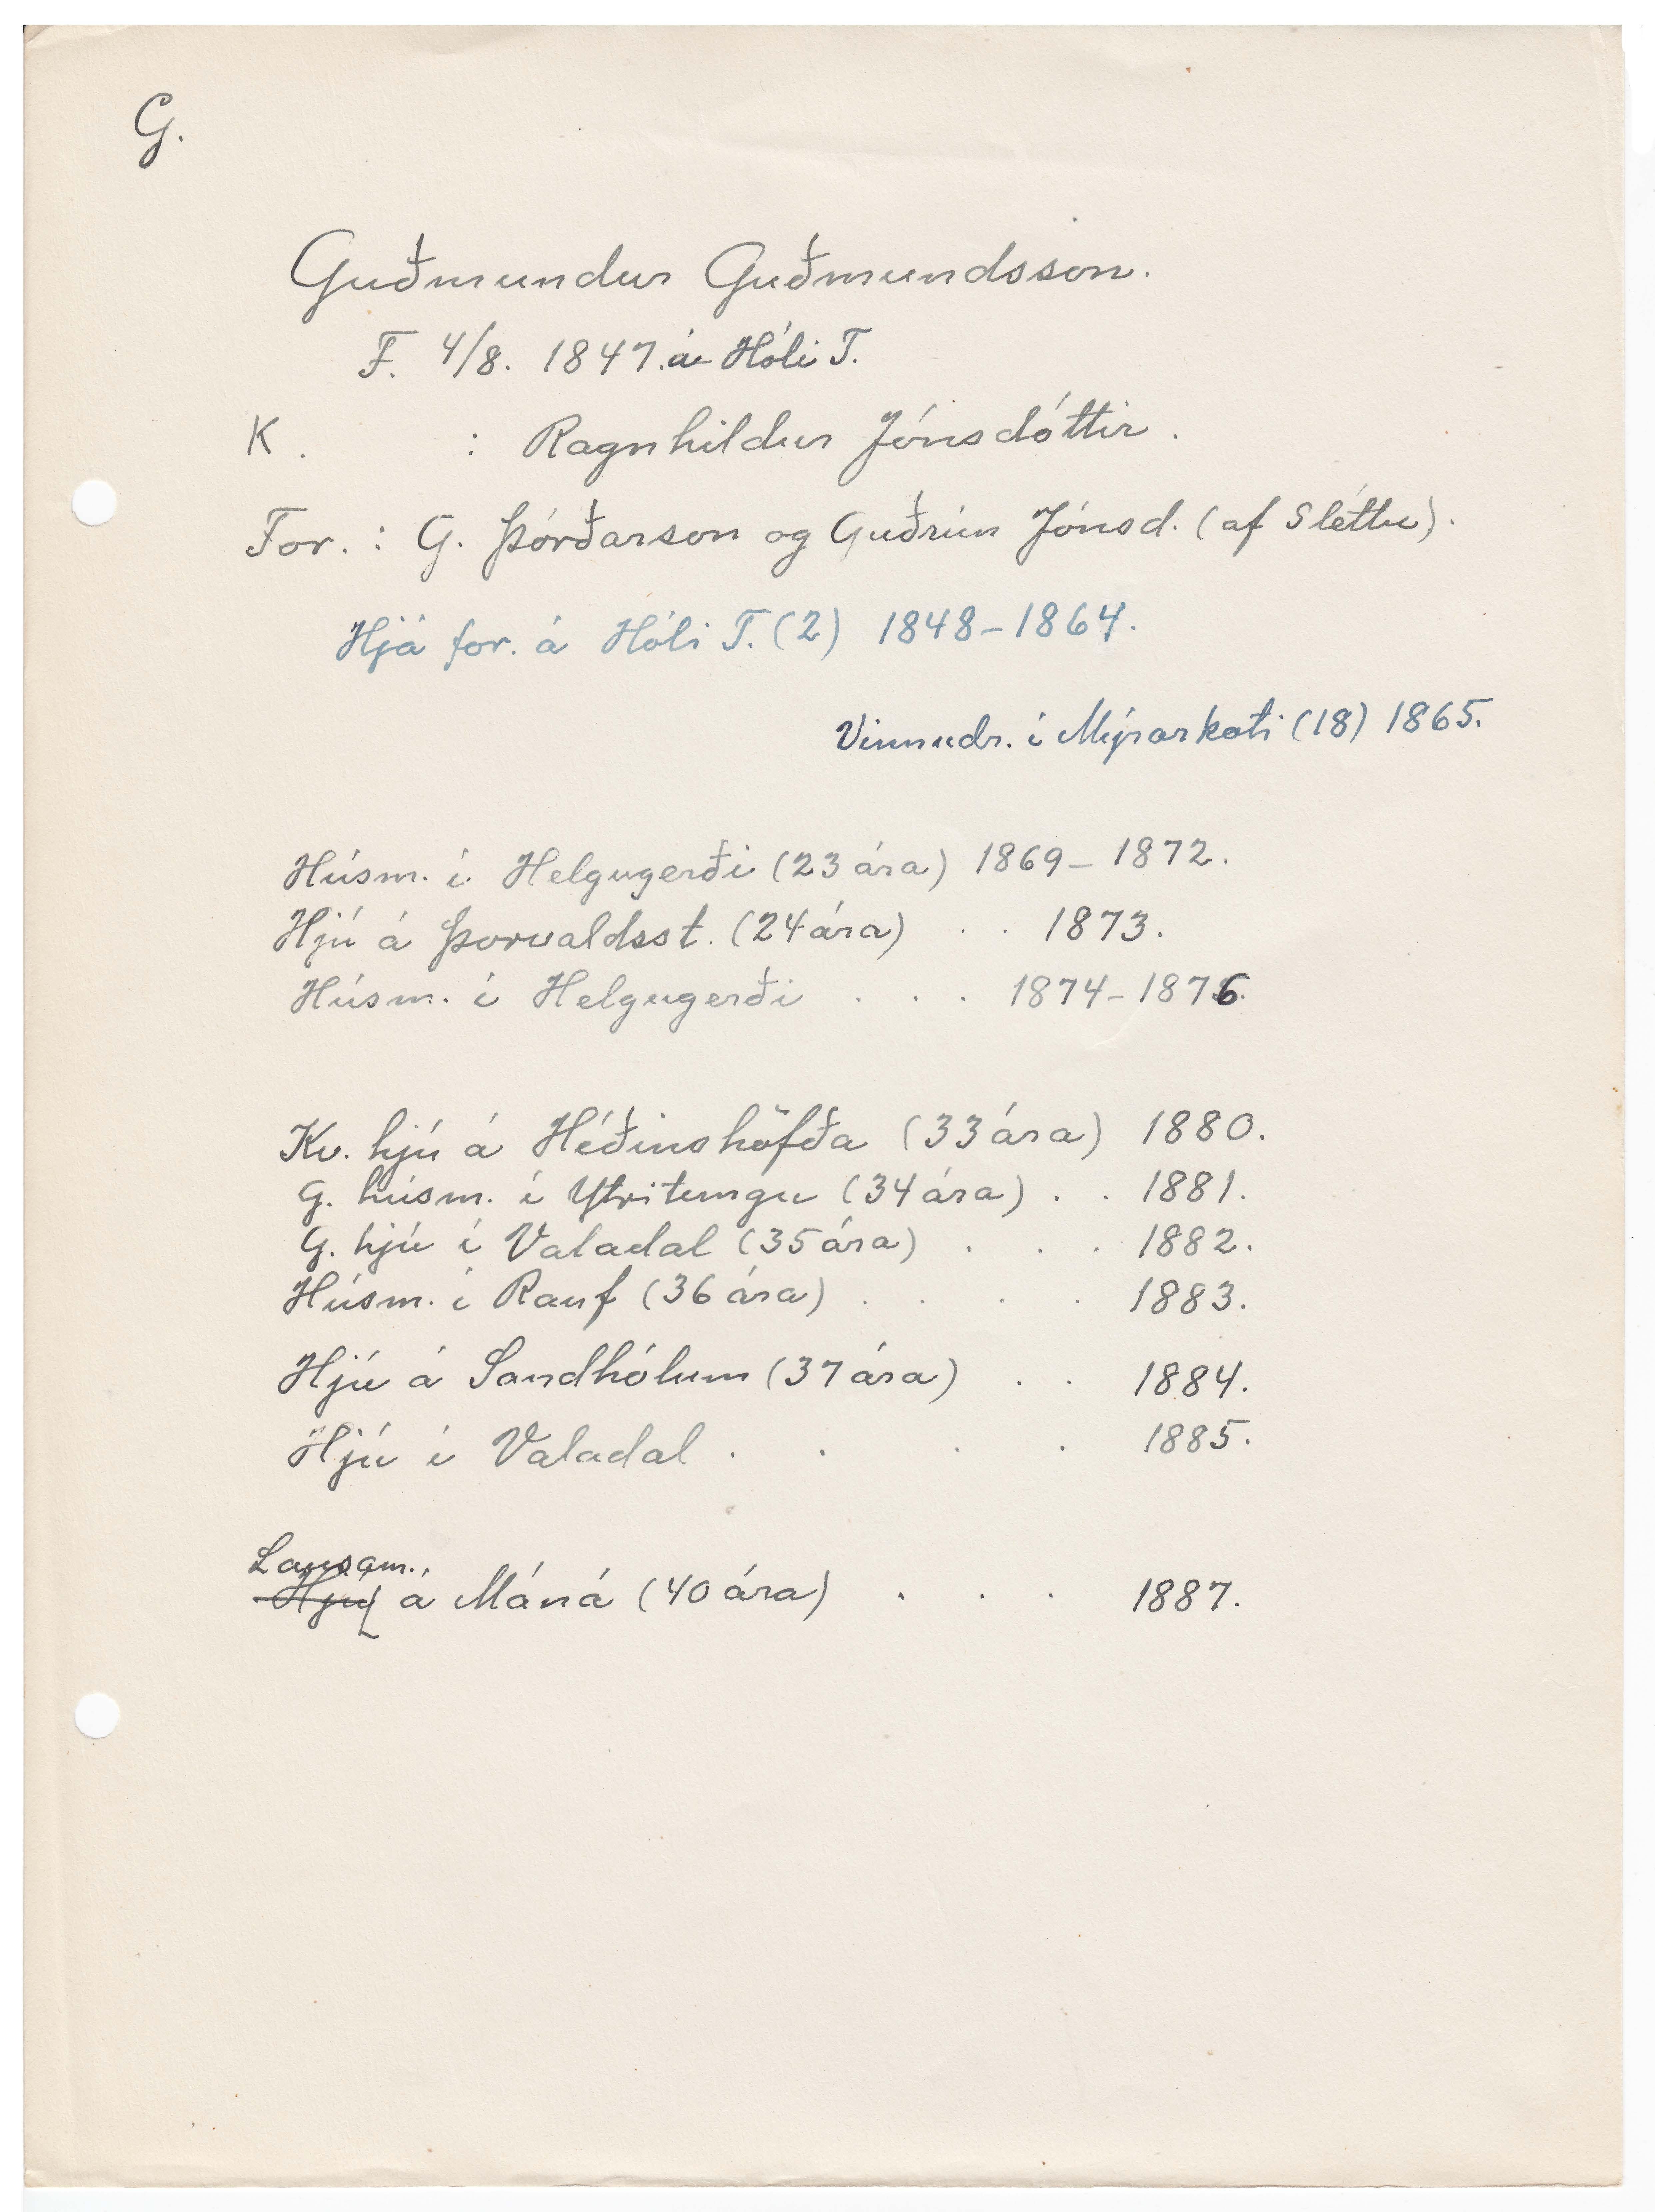 G.
Guðmundur Guðmundsson.
F. 4/8. 1847. á Hóli T.
K. : Ragnhildur Jónsdóttir.
For.: G. Þórðarson og Guðrún Jónsd. (af Sléttu).
Hjá for. á Hóli T. (2) 1848-1864.
Vinnudr. í Mýrarkoti (18) 1865.
Húsm. í Helgugerði (23 ára) 1869-1872.
Hjú á Þorvaldsst. (24 ára) . . 1873.
Húsm. í Helgugerði . . . 1874-1876.
Kv. hjú á Héðinshöfða (33 ára) 1880.
G. húsm. í Ytritungu (34 ára) . . 1881.
G. hjú í Valadal (35 ára) . . . 1882.
Húsm. í Rauf (36 ára) . . . . 1883.
Hjú á Sandhólum (37 ára) . . 1884.
Hjú í Valadal . . . . 1885.
Lausam.
Hjú á Máná (40 ára) . . . 1887.